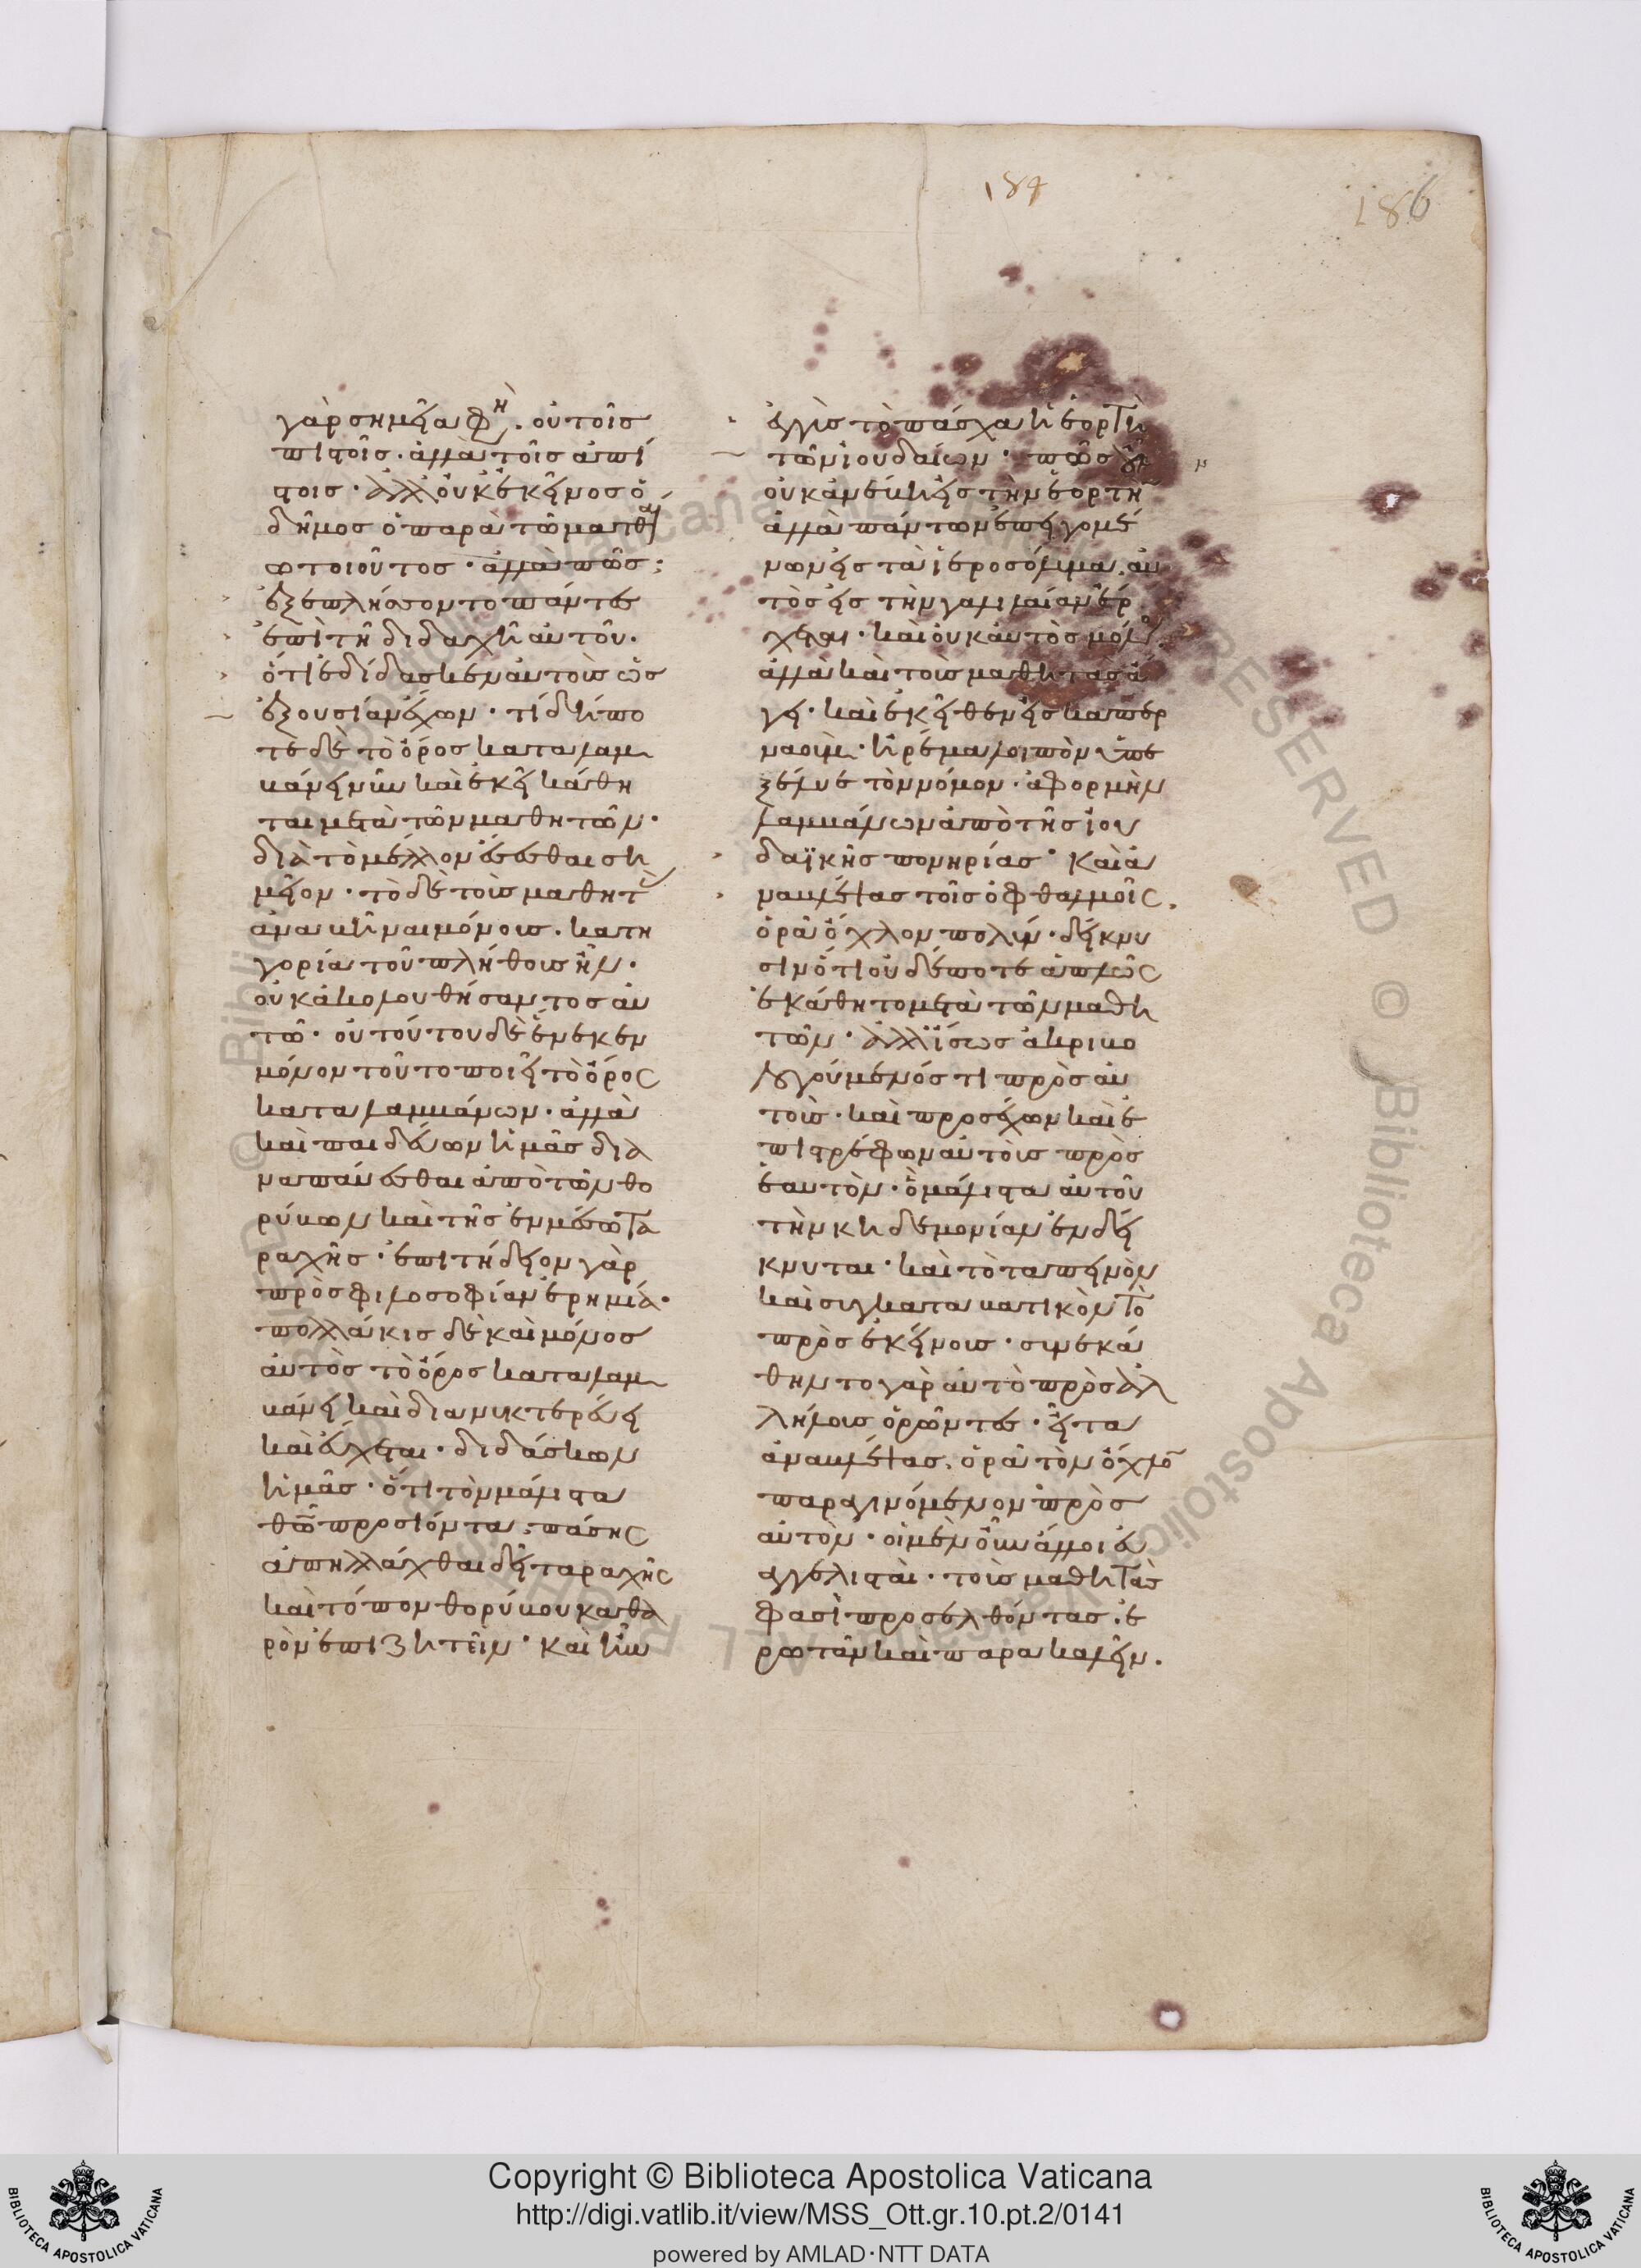 187
186
γὰρ σημεῖα φη. οὐ τοῖς
πιστοῖς· ἀλλὰ τοῖς ἀπί
στοις· ἀλλ' οὐκ ἐκεῖνος ὁ
δῆμος ὁ παρὰ τῶ ματθαί
ω τοιοῦτος· ἀλλὰ πῶς;
ἐξεπλήσσοντο πάντες
ἐπὶ τῆ διδαχῆ αὐτοῦ.
ὅτι ἐδίδασκεν αὐτοὺς ὡς
ἐξουσίαν ἔχων· τί δήπο
τε δὲ τὸ ὄρος καταλαμ
βάνει νῦν καὶ ἐκεῖ κάθη
ται μετὰ τῶν μαθητῶν·
διὰ τὸ μέλλον ἔσεσθαι ση
μεῖον· τὸ δὲ τοὺς μαθητὰς
ἀναβῆναι μόνους. κατη
γορία τοῦ πλήθους ἦν.
οὐκ ἀκολουθήσαντος αὐ
τῶ· οὐ τούτου δὲ ἕνεκεν
μόνον τοῦτο ποιεῖ τὸ ὄρος
καταλαμβάνων· ἀλλὰ
καὶ παιδεύων ἡμᾶς δια
ναπαύεσθαι ἀπὸ τῶν θο
ρύβων καὶ τῆς ἐν μέσω τα
ραχῆς· ἐπιτήδειον γὰρ
πρὸς φιλοσοφίαν ἐρημία·
πολλάκις δὲ καὶ μόνος
αὐτὸς τὸ ὄρος καταλαμ
βάνει καὶ διανυκτερεύει
καὶ εὔχεται· διδάσκων
ἡμᾶς· ὅτι τὸν μάλιστα
θῶ προσιόντα· πάσης
ἀπηλλάχθαι δεῖ ταραχῆς
καὶ τόπον θορύβου καθα
ρὸν ἐπιζητεῖν· καὶ ἦν
ἐγγὺς τὸ πάσχα ἡ ἑορτὴ
τῶν ἰουδαίων· πῶς οὖν
οὐκ ἀνέβη εἰς τὴν ἑορτὴν
ἀλλὰ πάντων ἐπειγομέ
νων εἰς τὰ ἱεροσόλυμα. αὐ
τὸς εἰς τὴν γαλιλαίαν ἔρ
χεται· καὶ οὐκ αὐτὸς μόνος
ἀλλὰ καὶ τοὺς μαθητὰς ἄ
γει· καὶ ἐκεῖθεν εἰς καπερ
ναοὺμ· ἠρέμα λοιπὸν ὑπε
ξέλυε τὸν νόμον· ἀφορμὴν
λαμβάνων ἀπὸ τῆς ἰου
δαϊκῆς πονηρίας· καὶ ἀ
ναβλέψας τοῖς ὀφθαλμοῖς.
ὁρᾶ ὄχλον πολύν· δείκνυ
σιν ὅτι οὐδέποτε ἁπλῶς
ἐκάθητο μετὰ τῶν μαθη
τῶν· ἀλλ' ἴσως ἀκριβο
λογούμενός τι πρὸς αὐ
τοὺς· καὶ προσέχων καὶ ἐ
πιστρέφων αὐτοὺς πρὸς
ἑαυτὸν· ὃ μάλιστα αὐτοῦ
τὴν κηδεμονίαν ἐνδεί
κνυται· καὶ τὸ ταπεινὸν
καὶ συγκαταβατικὸν τὸ
πρὸς ἐκείνους· συνεκά
θηντο γὰρ αὐτὸ πρὸς ἀλ
λήλους ὁρῶντες· εἶτα
ἀναβλέψας. ὁρᾶ τὸν ὄχλον
παραγινόμενον πρὸς
αὐτὸν· οἱ μὲν οὖν ἄλλοι εὐ
αγγελισταὶ· τοὺς μαθητὰς
φασὶ προσελθόντας. ἐ
ρωτᾶν καὶ παρακαλεῖν.
Copyright © Biblioteca Apostolica Vaticana
http://digi.vatlib.it/view/MSS_Ott.gr.10.pt.2/0141
powered by AMLAD·NTT DATA
BIBLIOTECA APOSTOLICA VATICANA
BIBLIOTECA APOSTOLICA VATICANA